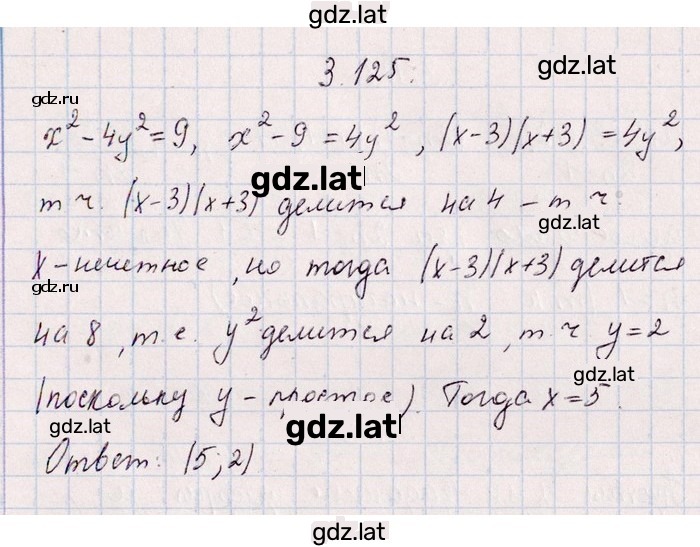 gdz.lat
3.125.
gdz.lat
gdz.ru
x²-4y²=9, x²-9=4y², (x-3)(x+3)=4y²,
gdz.lat
gdz.lat
т.ч. (x-3)(x+3) делится на 4 - т.ч.
gdz.lat
x-нечетное, но тогда (x-3)(x+3) делится
gdz.lat
на 8, т.е. y² делится на 2, т.ч y=2
gdz.lat
(поскольку y-простое). Тогда x=5.
gdz.lat
gdz.ru
Ответ: (5;2)
gdz.lat
gdz.lat